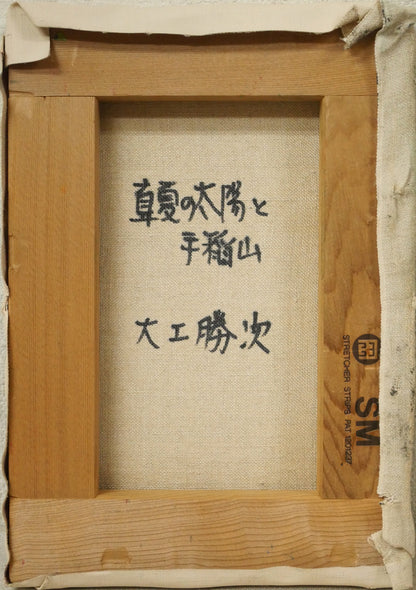 真夏の太陽と
手稲山
大工勝次
STRETCHER STRIPS PAT. 1207227
SM